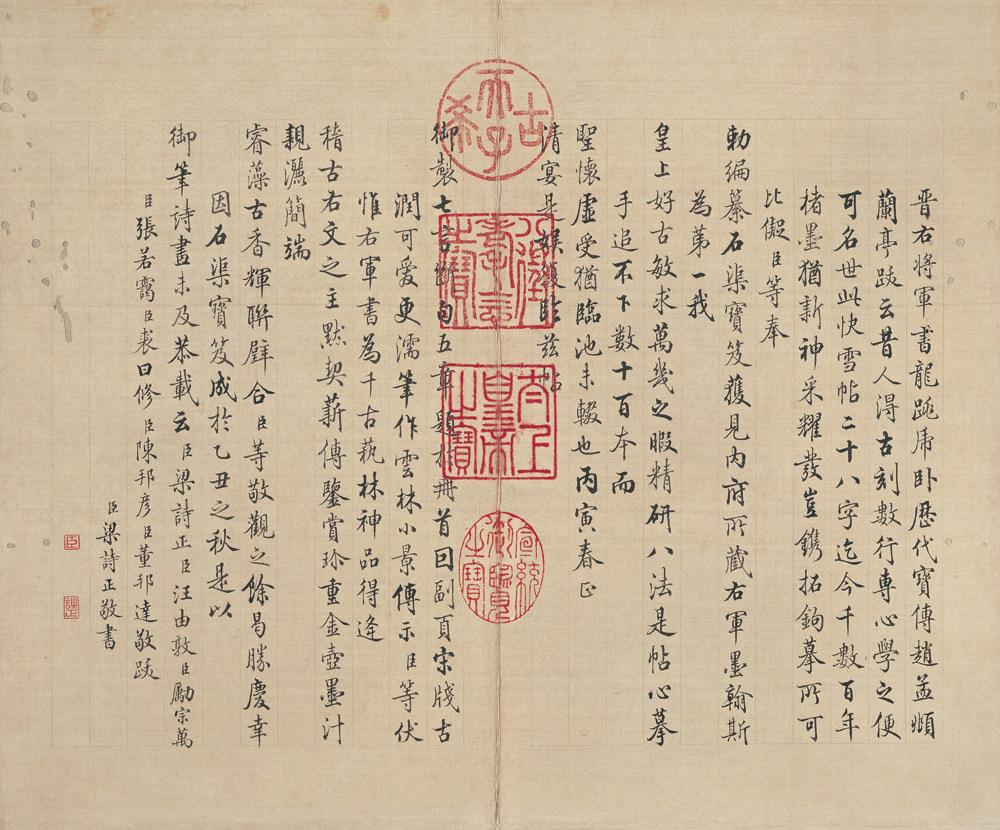 晉右將軍書龍跳虎臥歷代寶傳趙孟頫
蘭亭跋云昔人得古刻數行專心學之便
可名世此快雪帖二十八字迄今千數百年
楮墨猶新神采耀發豈鐫拓鉤摹所可
比儗臣等奉
勅編纂石渠寶笈獲見內府所藏右軍墨翰斯
為第一我
皇上好古敏求萬幾之暇精研八法是帖心摹
手追不下數十百本而
聖懷虛受猶臨池未輟也丙寅春正
清宴是帖
御製七言斷句五章題於冊首回副頁宋牋古
潤可愛更濡筆作雲林小景傳示臣等伏
惟右軍書為千古藝林神品得逢
稽古右文之主默契薪傳鑒賞珍重金壺墨汁
親灑簡端
睿藻古香輝聯璧合臣等敬觀之餘曷勝慶幸
因石渠寶笈成於乙丑之秋是以
御筆詩畫未及恭載云臣梁詩正臣汪由敦臣勵宗萬
臣張若靄臣裘曰修臣陳邦彥臣董邦達敬跋
臣梁詩正敬書
古希天子
八徵耄念之寶
太上皇帝之寶
宣統御覽之寶
臣